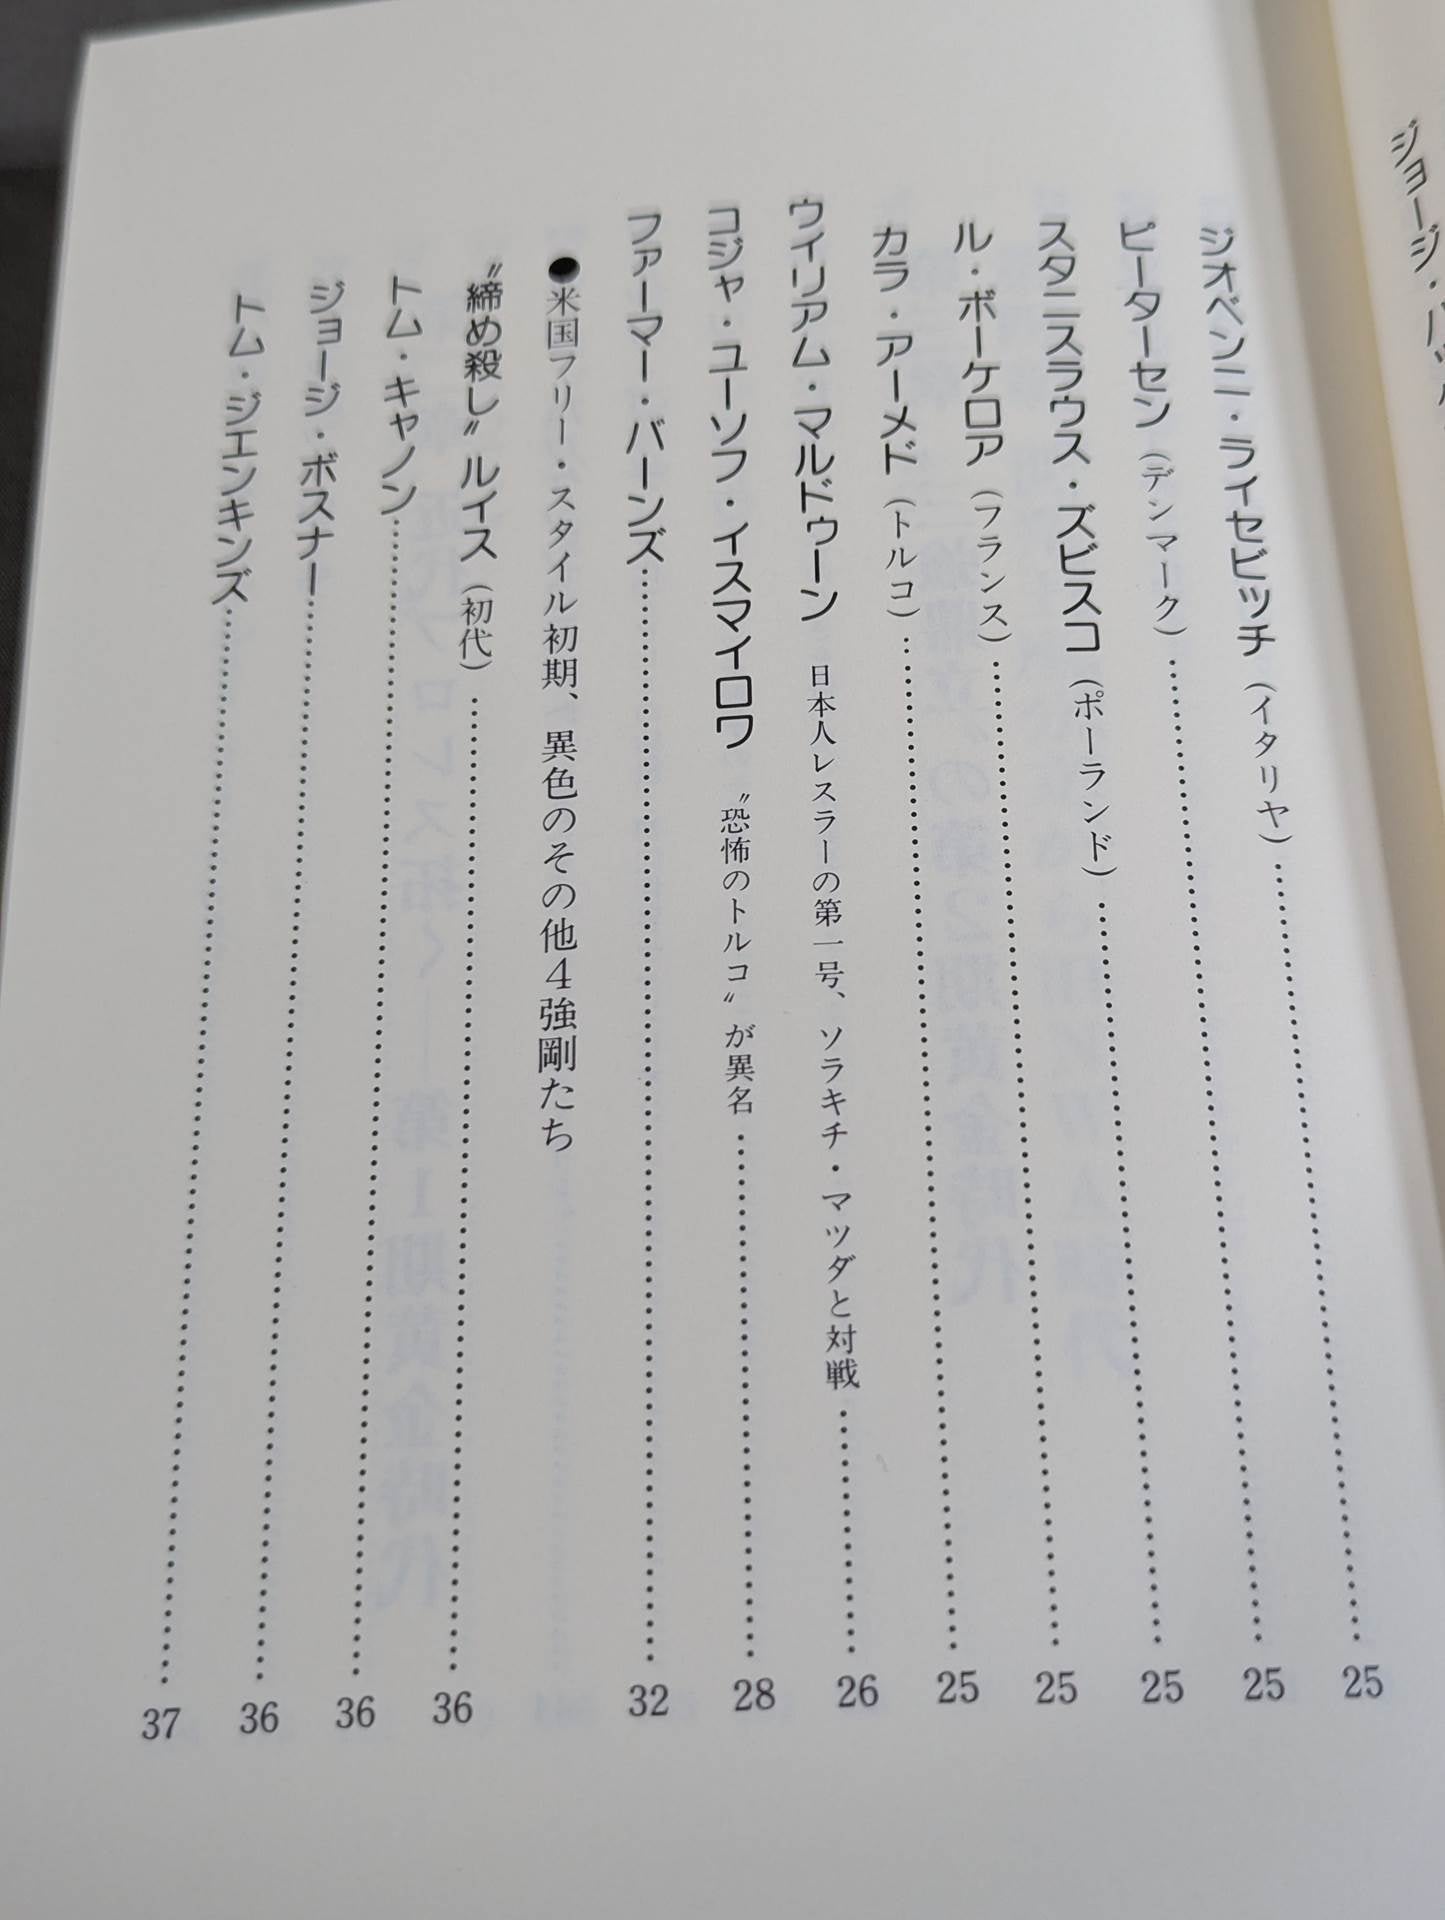 ジオベンニ・ライセビッチ（イタリヤ）……25
ピーターセン（デンマーク）……25
スタニスラウス・ズビスコ（ポーランド）……25
ル・ボーケロア（フランス）……25
カラ・アーメド（トルコ）……25
ウィリアム・マルドゥーン　日本人レスラーの第一号、ソラキチ・マツダと対戦……26
コジャ・ユーソフ・イスマイロワ　〝恐怖のトルコ〟が異名……28
ファーマー・バーンズ……32
●米国フリー・スタイル初期、異色のその他4強剛たち
〝締め殺し〟ルイス（初代）……36
トム・キャノン……36
ジョージ・ボスナー……36
トム・ジェンキンズ……37